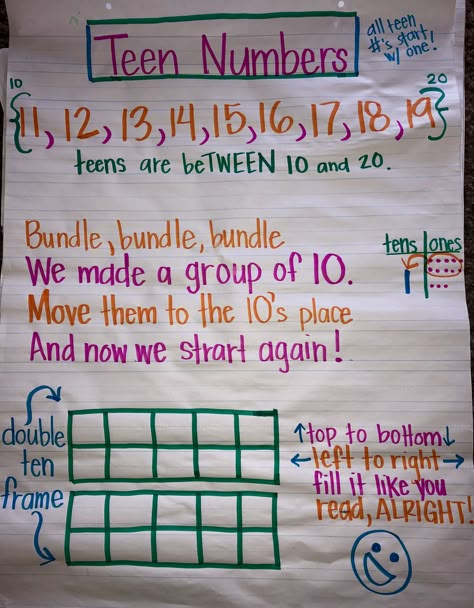 Teen Numbers
all teen
#'s start
w/ one!
10
20
{11, 12, 13, 14, 15, 16, 17, 18, 19}
teens are beTWEEN 10 and 20.
Bundle, bundle, bundle
We made a group of 10.
Move them to the 10's place
And now we strart again!
tens ones
double
ten
frame
↑top to bottom↓
←left to right→
fill it like you
read, ALRIGHT!